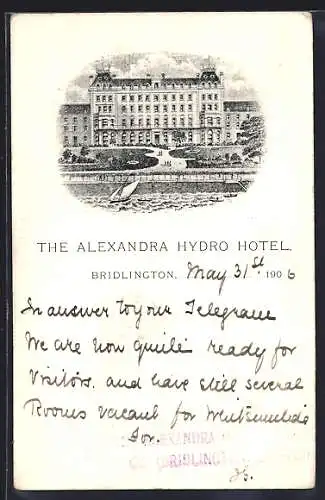 THE ALEXANDRA HYDRO HOTEL.
BRIDLINGTON. May 31st 1906
In answer to your Telegram
We are now quite ready for
Visitors. and have still several
Rooms vacant for Whitsuntide
ALEXANDRA
BRIDLINGT